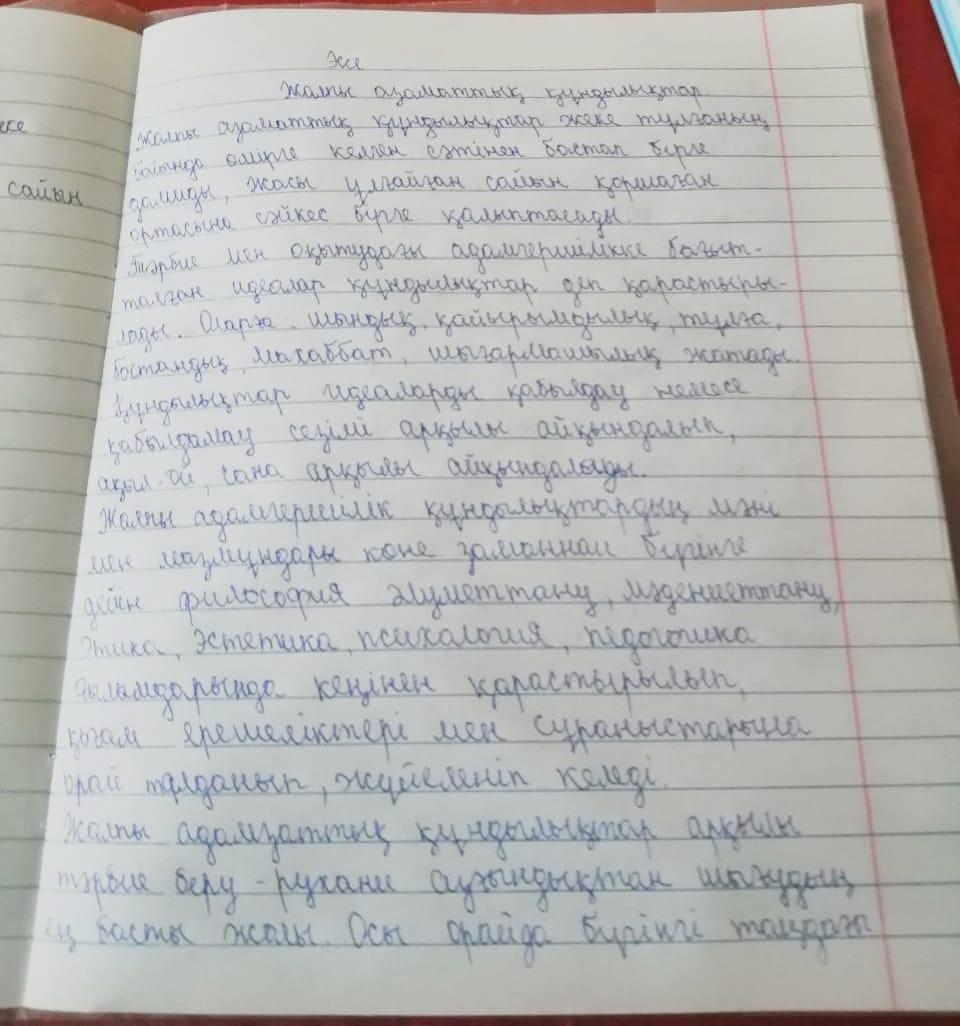 еке
сайын
Эссе
Жалпы азаматтық құндылықтар.
Жалпы азаматтық құндылықтар жеке тұлғаның
бойында өмірге келген сәтінен бастап бірге
дамиды, жасы ұлғайған сайын қоршаған
ортасына сәйкес бірге қалыптасады.
Тәрбие мен оқытудағы адамгершілікке бағыт-
талған идеалар құндылықтар деп қарастыры-
лады. Оларға шындық, қайырымдылық, тұлға,
бостандық, махаббат, шығармашылық жатады.
Құндылықтар идеаларды қабылдау немесе
қабылдамау сезімі арқылы айқындалып,
ақыл-ой, сана арқылы айқындалады.
Жалпы адамгершілік құндылықтардың мәні
мен мазмұндары көне заманнан бүгінге
дейін философия әлуметтану, мәдениеттану,
этика, эстетика, психалогия, педогогика
ғыламдарында кеңінен қарастырылып,
қоғам ерешеліктері мен сұраныстарына
орай талданып, жүйеленіп келеді.
Жалпы адамзаттық құндылықтар арқылы
тәрбие беру - рухани сузындықтан шығудың
ең басты жолы. Осы орайда бүгінгі таңдағы